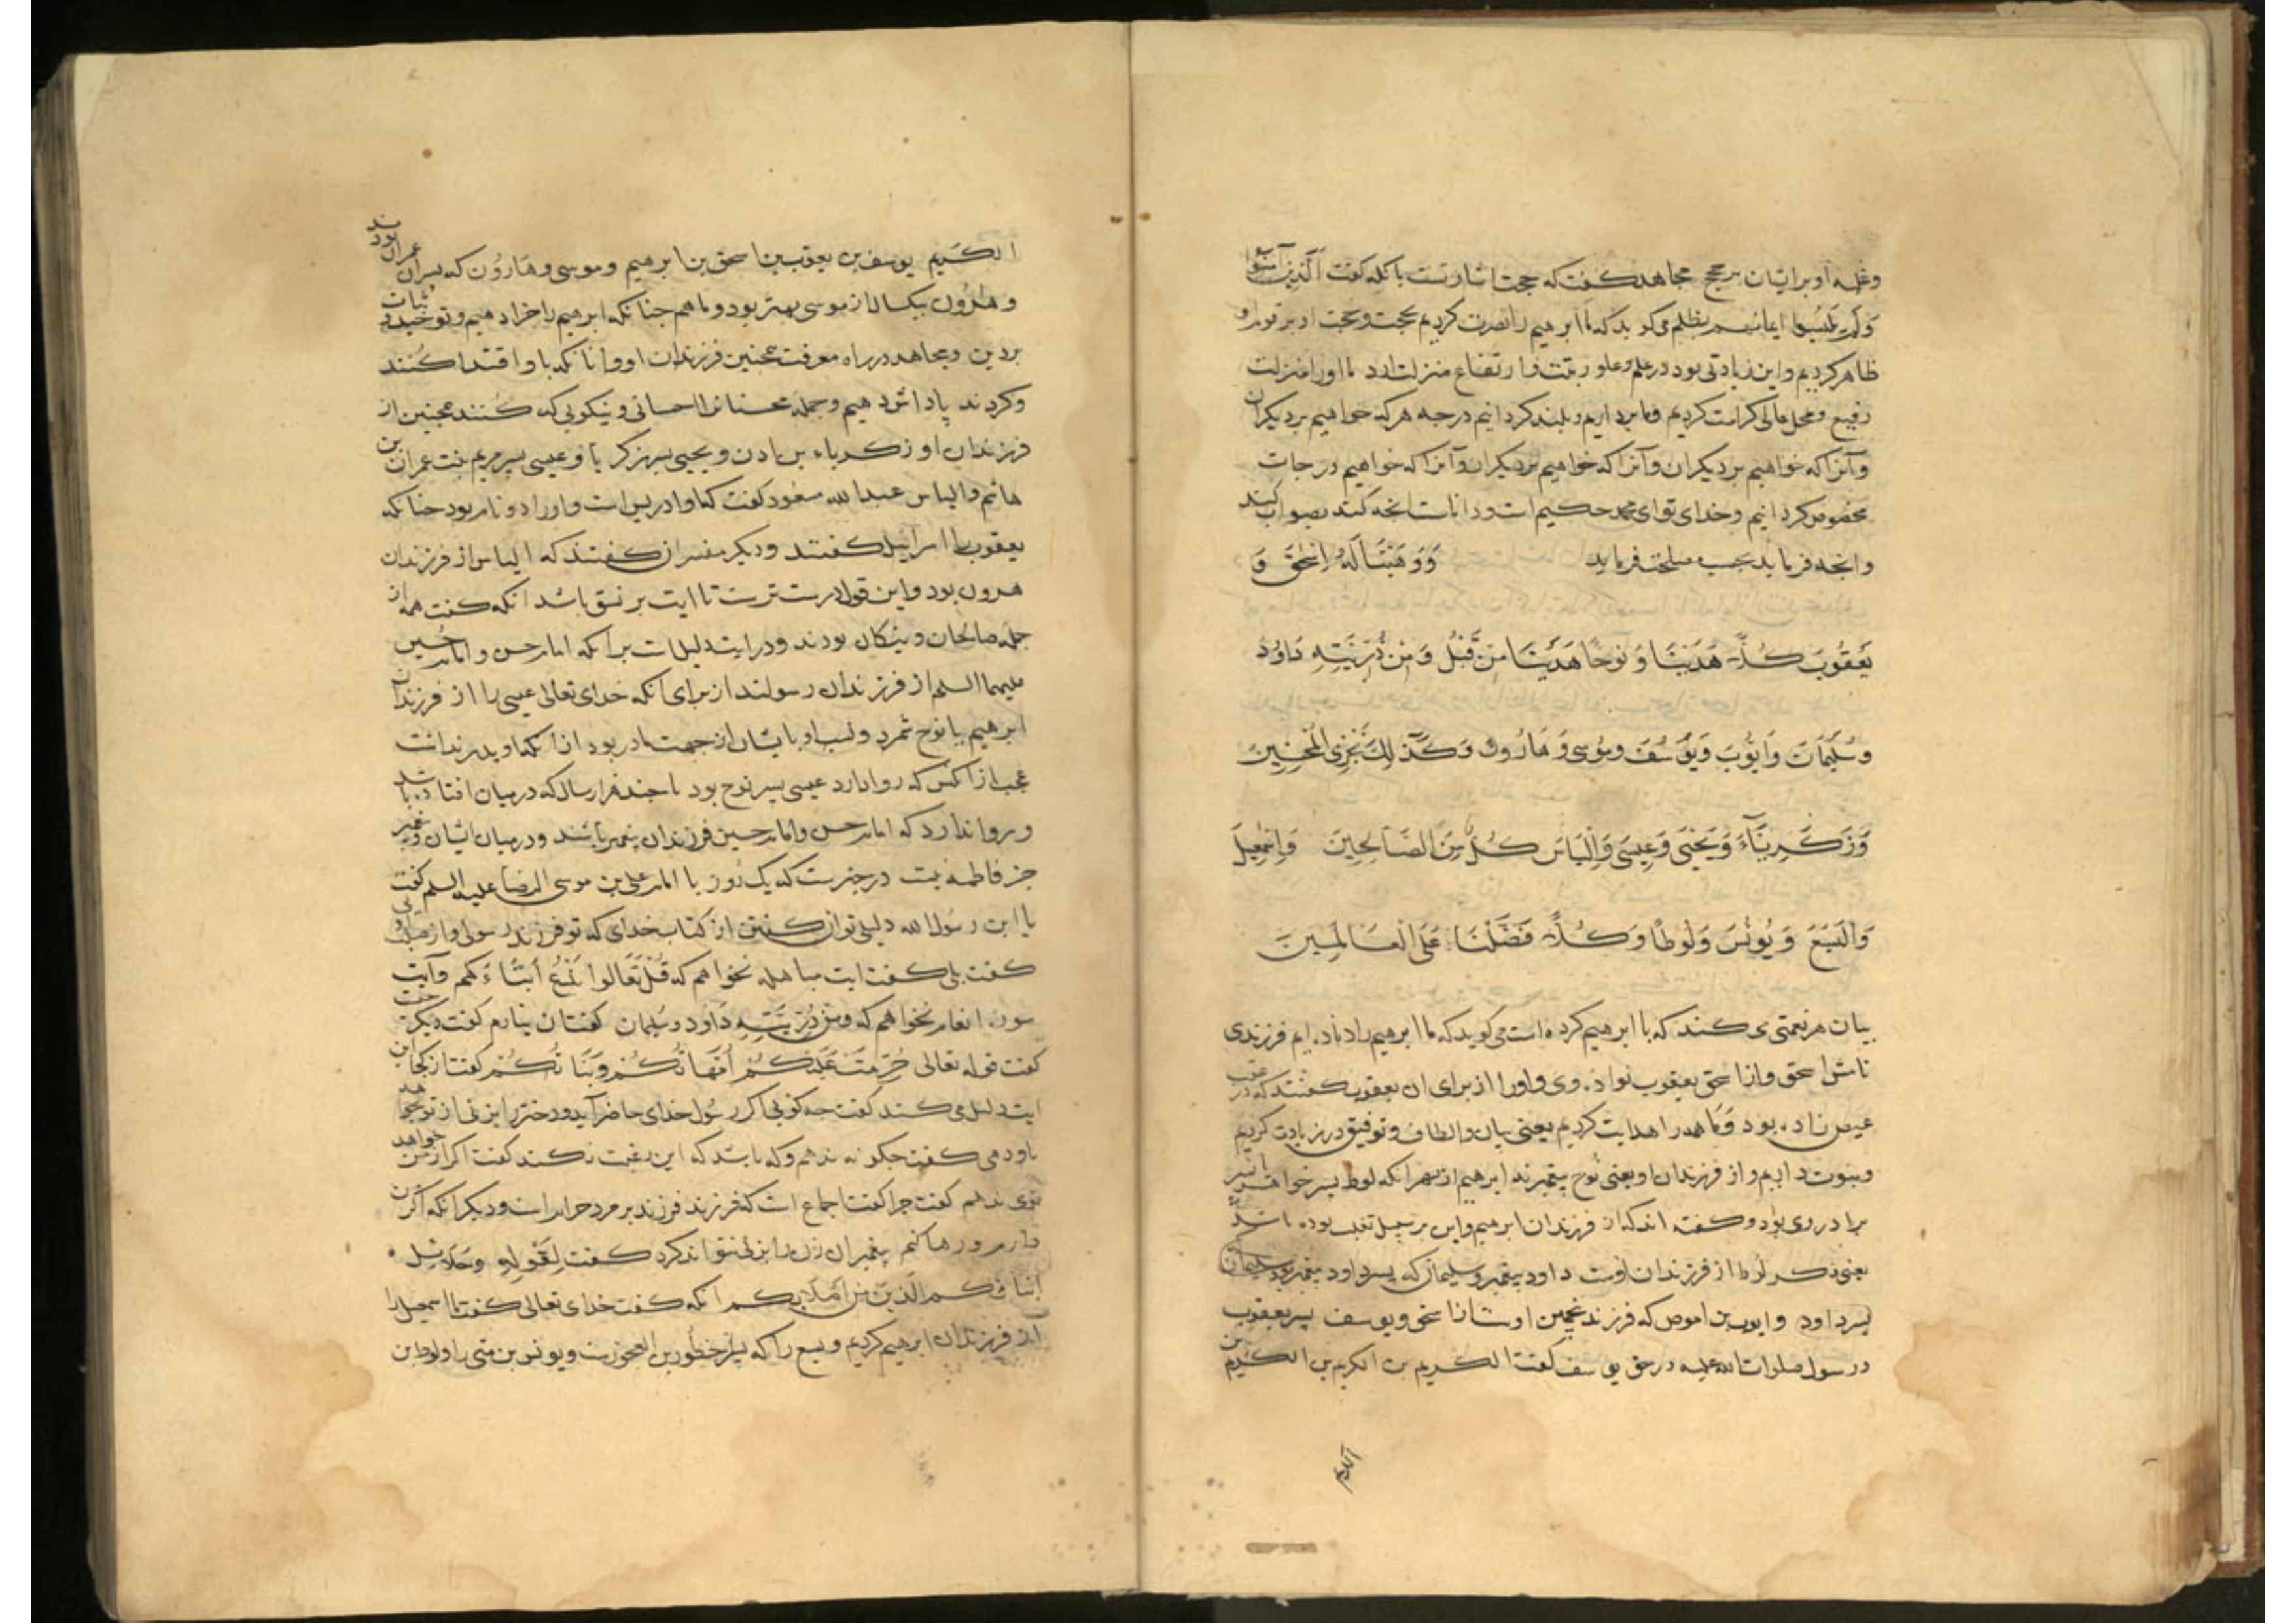 وغلبه او بر ایشان بر حجج مجاهد کفت که حجت اشارتست بانکه کفت الَّذِینَ آمَنُوا
وَلَمْ یَلْبِسُوا ایمانهم بظلم می کوید که ما ابرهیم را نصرت کردیم بحجت و حجت او بر قوم او
ظاهر کردیم و این زیادتی بود در علم و علو رتبت و ارتفاع منزلت او را منزلت
رفیع و محل عالی کرامت کردیم و ما برداریم و بلند کردانیم درجه هر که خواهیم بر دیکران
و آنرا که خواهیم بر دیکران و آنرا که خواهیم بر دیکران و آنرا که خواهیم درجات
مخصوص کردانیم و خدای تو ای محمد حکیم است و داناست انچه کند بصواب کند
وانجه فرماید بحسب مصلحت فرماید وَوَهَبْنَا لَهُ اِسْحَقَ وَ
یَعْقُوبَ کُلًّا هَدَیْنَا وَ نُوحًا هَدَیْنَا مِنْ قَبْلُ وَ مِنْ ذُرِّیَّتِهِ دَاوُدَ
وَسُلَیْمَانَ وَاَیُّوبَ وَیُوسُفَ وَمُوسَی وَهَارُونَ وَکَذَلِكَ نَجْزِی الْمُحْسِنِینَ
وَزَکَرِیَّاءَ وَیَحْیَی وَعِیسَی وَاِلْیَاسَ کُلٌّ مِنَ الصَّالِحِینَ وَاِسْمَعِیلَ
وَالْیَسَعَ وَیُونُسَ وَلُوطًا وَکُلًّا فَضَّلْنَا عَلَی الْعَالَمِینَ
بیان هر نعمتی می کند که با ابرهیم کرده است می کوید که ما ابرهیم را داده ایم فرزندی
نامش اسحق و از اسحق یعقوب نواده وی و او را از برای ان یعقوب کفتند که در عقب
عیص زاده بود و ما همه را هدایت کردیم یعنی بیان و الطاف و توفیق در زیادت کردیم
و نبوت دادیم و از فرزندان او یعنی نوح پیغمبرند ابرهیم از بهر انکه لوط پسر خواهر
برادر وی بود و کفته اند که از فرزندان ابرهیم و این بر سبیل تغلیب بوده باشد
یعنی ذکر لوط از فرزندان اوست داود پیغمبر و سلیمان که پسر داود پیغمبر بود سلیمان
پسر داود و ایوب بن اموص که فرزند عیص بن اسحق و یوسف پسر یعقوب
و رسول صلوات الله علیه در حق یوسف کفت الکریم بن الکریم بن الکریم بن
الکریم
الکریم یوسف بن یعقوب بن اسحق بن ابرهیم و موسی و هارُون که پسران عمران بودند
و هارُون بیکسال از موسی مهتر بود و ما هم جنانکه ابرهیم را جزا دهیم و توحید و ثبات
بر دین و مجاهده در راه معرفت همچنین فرزندان او و انانکه باو اقتدا کُنند
و کردند پاداش دهیم و جمله محسنانرا احسانی و نیکویی که کُنند همچنین از
فرزندان او زکریاء بن ادن و یحیی پسر زکریا و عیسی پسر مریم بنت عمران بن
ماثم و الیاس عبدالله مسعود کفت که او ادریس است و او را دو نام بود جنانکه
یعقوب را اسرائیل کفتند و دیکر مفسران کفتند که الیاس از فرزندان
هرون بود و این قول درست ترست تا ایت بر نسق باشد انکه کفت همه از
جمله صالحان و نیکان بودند و در ایت دلیلست بر انکه امام حسن و امام حُسین
علیهما السلم از فرزندان رسولند از برای انکه خدای تعالی عیسی را از فرزندان
ابرهیم یا نوح شمرد و نسب او با یشان از جهت مادر بود از انکه او پدر نداشت
عجب از انکس که روا دارد عیسی پسر نوح بود با جند هزار سال که در میان افتاده باشد
و روا ندارد که امام حسن و امام حسین فرزندان پیغمبر باشند و در میان ایشان و پیغمبر
جز فاطمه نیست در خبرست که یک رُوز با امام علی بن موسی الرضا علیه السلم کفت
یا ابن رسُول الله دلیلی توان کفتن از کتاب خدای که تو فرزند رسولی و از صلب اوی
کفت بلی کفت ایت مباهله نخواهم که قُلْ تَعَالَوا نَدْعُ اَبْنَاءَکم و آیت
سورة انعام نخواهم که وَمِنْ ذُرِّیَّتِهِ دَاوُدَ وسُلیمان کفت ان نیارم کفت دیکر
کفت قوله تعالی حُرِّمَتْ عَلَیْکُمْ اُمَّهَاتُکُمْ وَبَنَاتُکُمْ کفت از کجا این
ایت دلیل می کند کفت جه کویی اکر رسُول خدای حاضر آید و دختر زاین تو از تو بخواهد
باو دهی کفت جکونه ندهم و که باشد که این رغبت نکند کفت اکر از من خواهد
من ندهم کفت جرا کفت اجماع است که فرزند فرزند بر مرد حرام است و دیکر انکه اکر زن
دارم و رها کنم پیغمبر ان زن را بزنی نتواند کرد کفت لِقَولِهِ وحَلَائِلُ
اَبْنَائِکم الَّذِینَ مِنْ اَصْلَابِکم انکه کفت خدای تعالی کفت ما اسمعیل را
از فرزندان ابرهیم کردیم و یسع را که پسر اخطُوب بن العجوزست و یونس بن متی را و لوط بن